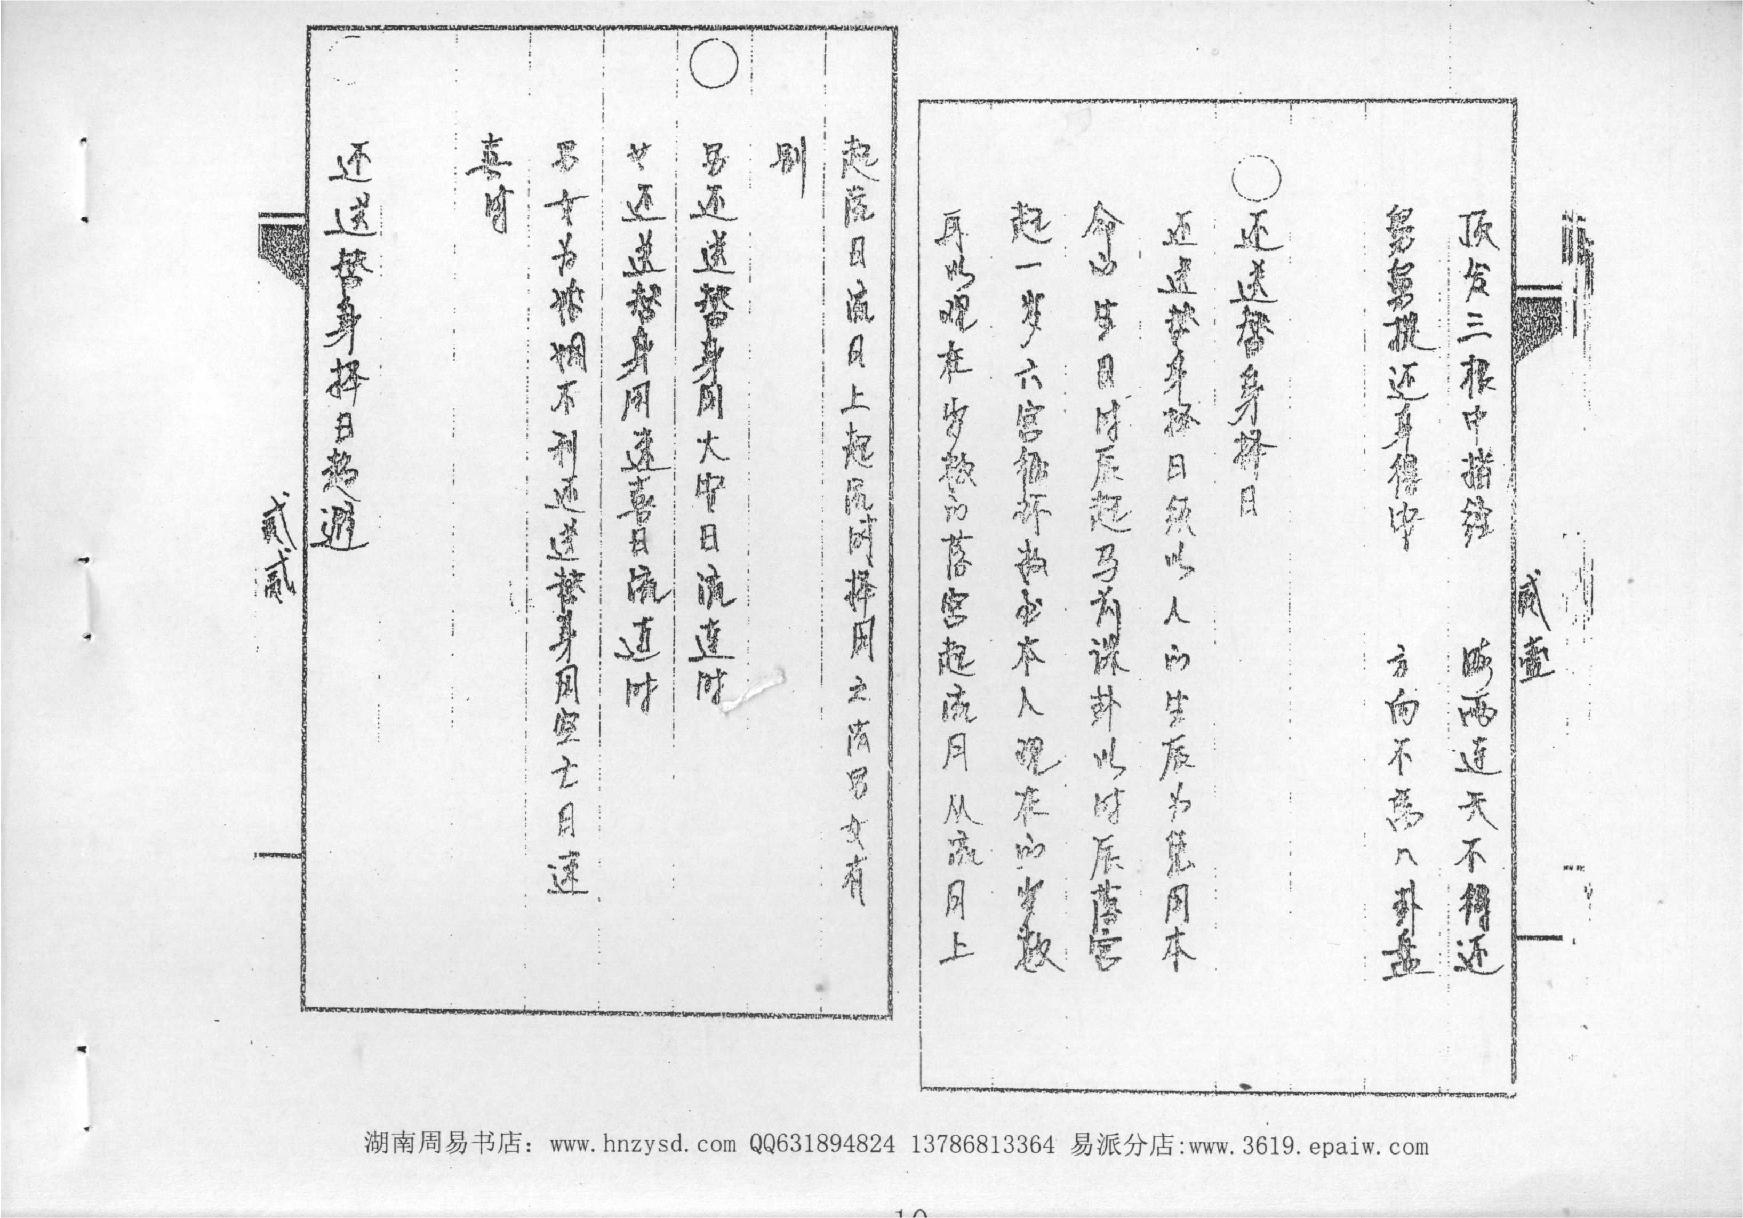 顶发三根中指经 阴雨连天不得还
男男提还身得中 方向不离八卦盘
还送替身择日
还送替身择日须以人的生辰为凭用本
命的生日时辰起马前课卦以时辰落宫
起一岁六宫循环数出本人现在的岁数
再以现在岁数的落宫起流月从流月上
贰壹
起流日流日上起流时择用之法男女有
别
男还送替身用大安日流连时
女还送替身用速喜日流连时
男女为婚姻不利还送替身用空亡日速
喜时
还送替身择日起遁
贰贰
湖南周易书店：www.hnzysd.com QQ631894824 13786813364 易派分店:www.3619.epaiw.com